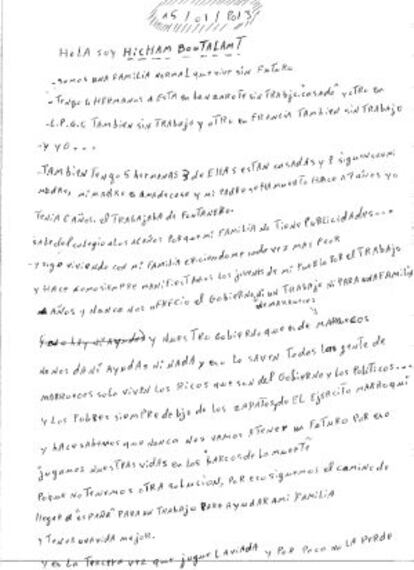 15/01/2013
Hola soy HICHAM BOUTALAMT
- somos una familia normal que vivir sin futuro
- tengo 6 hermanos a esta en Lanzarote sin trabajo "casado" y otro en
- L.P.G.C tambien sin trabajo y otro en Francia tambien sin trabajo
- y yo....
- tambien tengo 5 hermanas 3 de ellas estan casadas y 2 siguen con mi
madre, mi madre es ama de casa y mi padre se ha muerto hace 17 años yo
tenia 6 años. el trabajaba de fontanero.
sabe del colegio a los años porque mi familia no tiene publicidades....
- y sigo viviendo con mi familia cada vez mas peor
y hace como siempre manifestamos los jovenes de mi pueblo por el trabajo
años y nunca nos ofrecio el gobierno ni un trabajo ni para una familia
de marruecos
y nuestro gobierno que es de marruecos
no nos da ni ayudas ni nada y eso lo saven todas las gente de
marruecos solo viven los ricos que son del gobierno y los politicos....
y los pobres siempre debjo de los zapatos de el ejercito marroqui
y hace sabemos que nunca nos vamos a tener un futuro por eso
jugamos nuestras vidas en los "barcos de la muerte"
poque no tenemos otra solucion, por eso siguemos el camino de
llegar a "españa" para un trabajo para ayudar a mi familia
y tener una vida mejor.
y es la tercera vez que jugue la viada y por poco no la perde